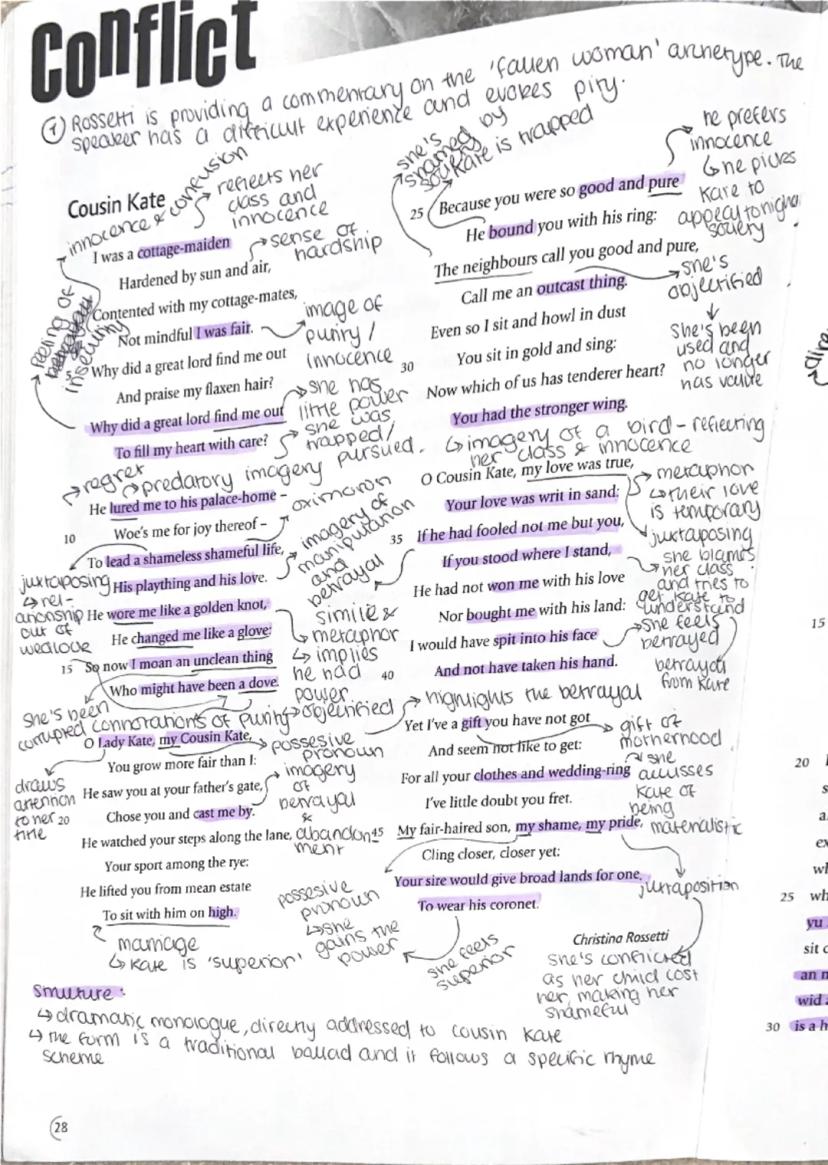 Conflict
① Rossetti is providing a commentary on the 'fallen woman' archetype. The
speaker has a difficult experience and evokes pity.
Cousin Kate
innocence & confusion
reflects her
class and
innocence
I was a cottage-maiden
sense of
hardship
Hardened by sun and air,
Contented with my cottage-mates,
Not mindful I was fair.
image of
purity /
innocence
feeling of
insecurity
5
Why did a great lord find me out
And praise my flaxen hair?
Why did a great lord find me out
she has
little power
To fill my heart with care?
she was
trapped/
pursued.
regret
predatory imagery
He lured me to his palace-home –
oximoron
10 Woe's me for joy thereof –
To lead a shameless shameful life,
imagery of
manipulation
and
betrayal
His plaything and his love.
juxtaposing
↳ rel-
ationship
out of
wedlock
He wore me like a golden knot,
simile &
↳ metaphor
↳ implies
he had
power
→ objectified
He changed me like a glove:
15 So now I moan an unclean thing
Who might have been a dove.
she's been
corrupted
connotations of purity
O Lady Kate, my Cousin Kate,
possesive
pronoun
You grow more fair than I:
He saw you at your father's gate,
imagery
of
betrayal
&
abandon
ment
draws
attention
to her
title
20
Chose you and cast me by.
He watched your steps along the lane,
Your sport among the rye:
He lifted you from mean estate
To sit with him on high.
marriage
↳ Kate is 'superior'
she's
shamed by
society
Kate is trapped
he prefers
innocence
↳ he picks
Kate to
appeal to higher
society
Because you were so good and pure
25
He bound you with his ring:
The neighbours call you good and pure,
Call me an outcast thing.
she's
objectified
↓
she's been
used and
no longer
has value
Even so I sit and howl in dust
30 You sit in gold and sing:
Now which of us has tenderer heart?
You had the stronger wing.
↳ imagery of a bird – reflecting
her class & innocence
O Cousin Kate, my love was true,
metaphor
↳ their love
is temporary
Your love was writ in sand:
35 If he had fooled not me but you,
juxtaposing
If you stood where I stand,
she blames
her class
and tries to
get Kate to
understand
He had not won me with his love
Nor bought me with his land:
I would have spit into his face
she feels
betrayed
40 And not have taken his hand.
betrayal
from Kate
highlights the betrayal
Yet I've a gift you have not got
gift of
motherhood
And seem not like to get:
For all your clothes and wedding-ring
she
accuses
Kate of
being
materialistic
I've little doubt you fret.
45 My fair-haired son, my shame, my pride,
Cling closer, closer yet:
Your sire would give broad lands for one,
juxtaposition
To wear his coronet.
possesive
pronoun
↳ she
gains the
power
she feels
superior
Christina Rossetti
she's conflicted
as her child cost
her, making her
shameful
structure:
↳ dramatic monologue, directly addressed to cousin Kate
↳ the form is a traditional ballad and it follows a specific rhyme
scheme
28
15
20
25 wh
yu
sit c
an n
wid
30 is a h